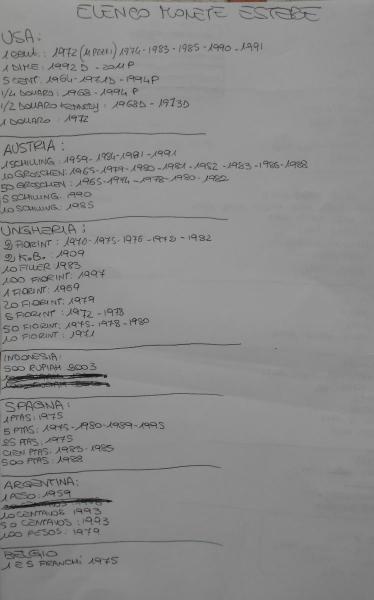 ELENCO MONETE ESTERE
USA:
1 CENT.: 1972 (4 PEZZI) 1974-1983-1985-1990-1991
1 DIME: 1992 D - 2011 P
5 CENT: 1964-1971D-1994P
1/4 DOLLARO: 1968-1994 P
1/2 DOLLARO KENNEDY: 1968D-1973D
1 DOLLARO: 1972
AUSTRIA:
1 SCHILLING: 1959-1984-1981-1991
10 GROSCHEN: 1965-1979-1980-1981-1982-1983-1986-1988
50 GROSCHEN: 1965-1974-1978-1980-1982
5 SCHILLING 1990
10 SCHILLING: 1985
UNGHERIA:
2 FIORINT: 1970-1975-1976-1979-1982
2 K.B.: 1909
10 FILLER 1983
100 FIORINT: 1997
1 FIORINT: 1969
20 FIORINT: 1979
5 FIORINT: 1972-1978
50 FIORINT: 1975-1978-1980
10 FIORINT: 1971
INDONESIA:
500 RUPIAH 2003
SPAGNA:
1 PTAS: 1975
5 PTAS: 1975-1980-1989-1995
25 PTAS: 1975
CIEN PTAS: 1983-1985
500 PTAS: 1988
ARGENTINA:
1 PESO: 1959
10 CENTAVOS 1993
50 CENTAVOS: 1993
100 PESOS: 1979
BELGIO
1 E 5 FRANCHI 1975